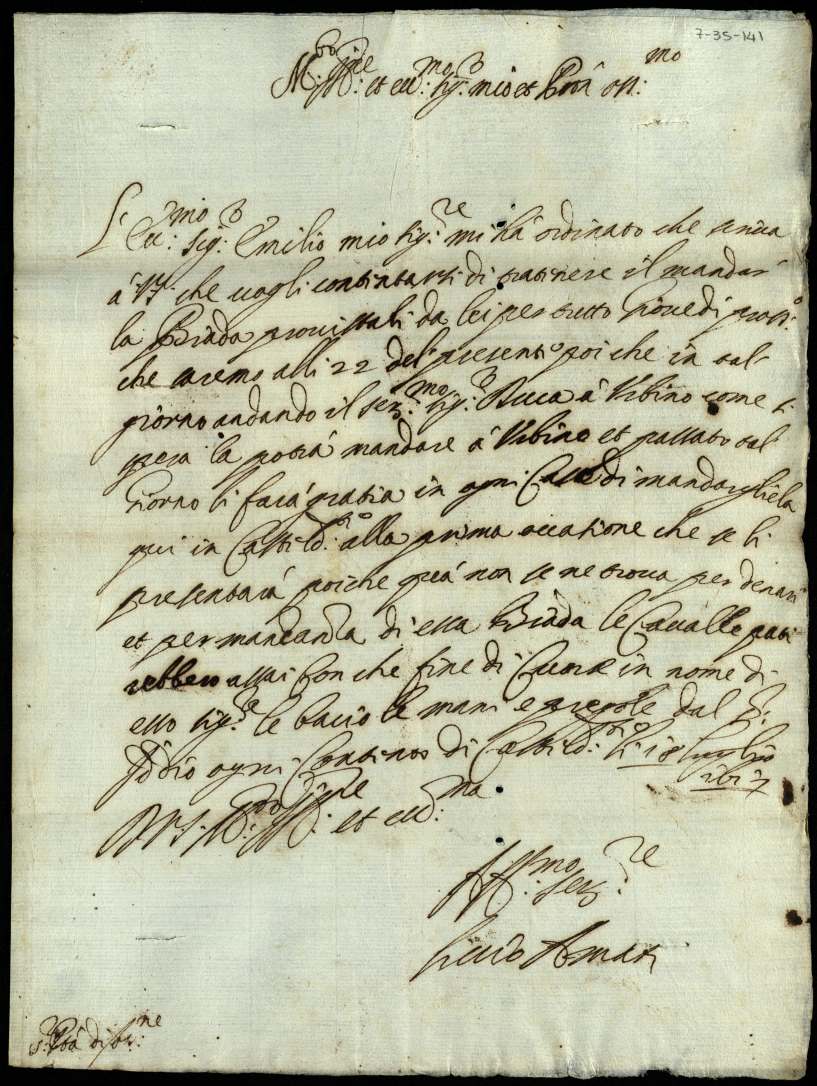 7-35-141
M:to Ill:re et ecc:mo sig:r mio et Pron oss:mo
L'Ecc:mo sig:r Emilio mio sig:re mi hà ordinato che scriva
à V.S. che vogli contentarsi di tratinere il mandar
la Biada provistali da lei per tutto Giovedi pross:o
che saremo alli 22 del presente poi che in tal
giorno andando il ser:mo sig:r Duca à Urbino come si
spera la potrà mandare à Urbino et passato tal
Giorno li farà gratia in ogni Caso di mandargliela
qui in Casteld: alla prima occatione che se li
presentarà poiche quà non se ne trova per denari
et per mancanza di essa Biada le Cavalle pati
rebbero assai Con che fine di in nome di
esso sig:re le bacio le mani e pregole dal S:
Iddio ogni Contento di Casteld: li 18 luglio
161
D V.S. M:to Ill:re et ecc:ma
Aff:mo ser:re
Livio Amati